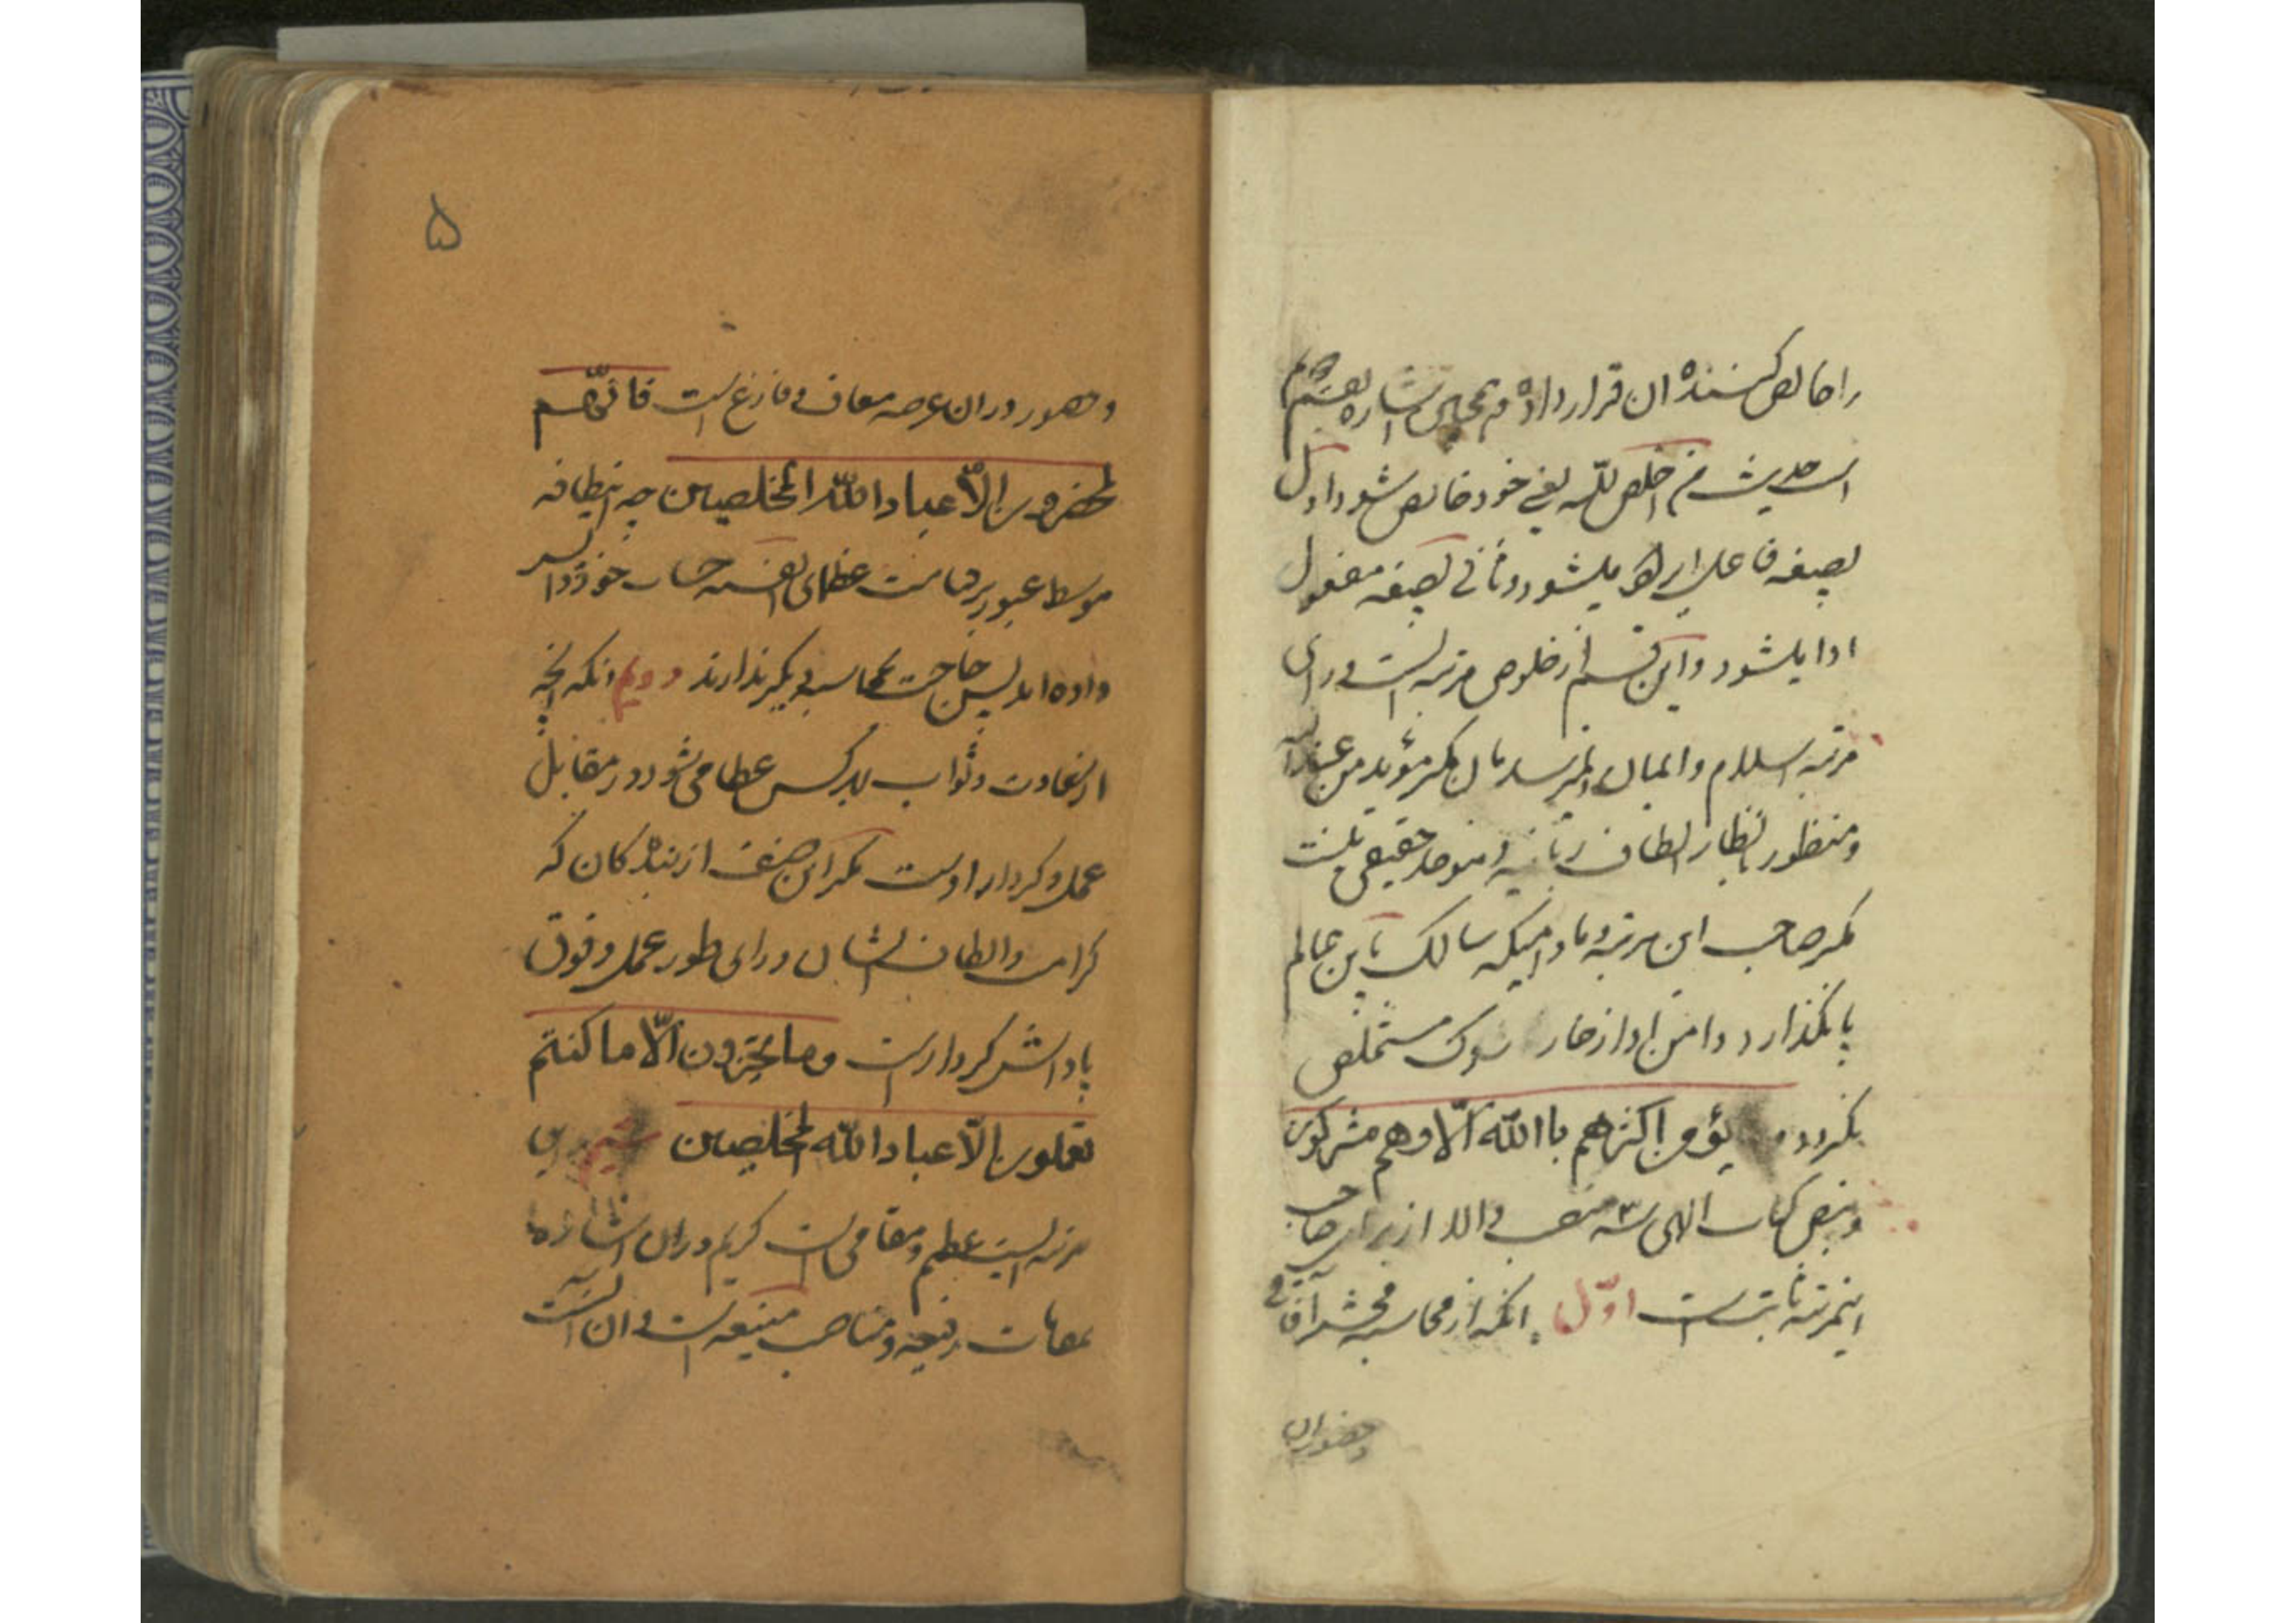 را خالص کننده ان قرار داده و همچنین اشاره بقسم دوم
است حدیث من اخلص لله یعنی خود خالص شود و اول
بصیغه فاعل ایراد میشود و ثانی بصیغه مفعول
ادا میشود و این قسم از خلوص مرتبه ایست ورای
مرتبه اسلام و ایمان و نمیرسد بآن مگر مؤید من عندالله
و منظور انظار الطاف ربانیه و موحد حقیقی نیست
مگر صاحب این مرتبه و مادامیکه سالک باین عالم
پا نگذارد دامن او از خار شرک مستخلص
نگردد و یؤمن اکثرهم باالله الّا وهم مشرکون
و بنص کتاب الهی سه منصب والا از برای صاحب
اینمرتبه ثابتست اوّل انکه از محاسبه محشر آفاقی
و حضور دران
۵
و حضور دران عرصه معاف و فارغ است فانّهم
لمحضرون الّا عبادالله المخلصین چه این طایفه
بواسطه عبور بر قیامت عظمای انفسیه حساب خود را پس
داده اند پس حاجت بمحاسبه دیگر ندارند دویم انکه انچه
از سعادت و ثواب بهر کس عطا می شود در مقابل
عمل و کردار اوست مگر این صنف از بندگان که
کرامت و الطاف بایشان ورای طور عمل و فوق
پاداش کردار است وما تجزون الّا ما کنتم
تعملون الّا عبادالله المخلصین سیم این
مرتبه ایست عظیم و مقامی است کریم و دران اشاره
بمقامات رفیعه و مناصب منیعه است و ان انست